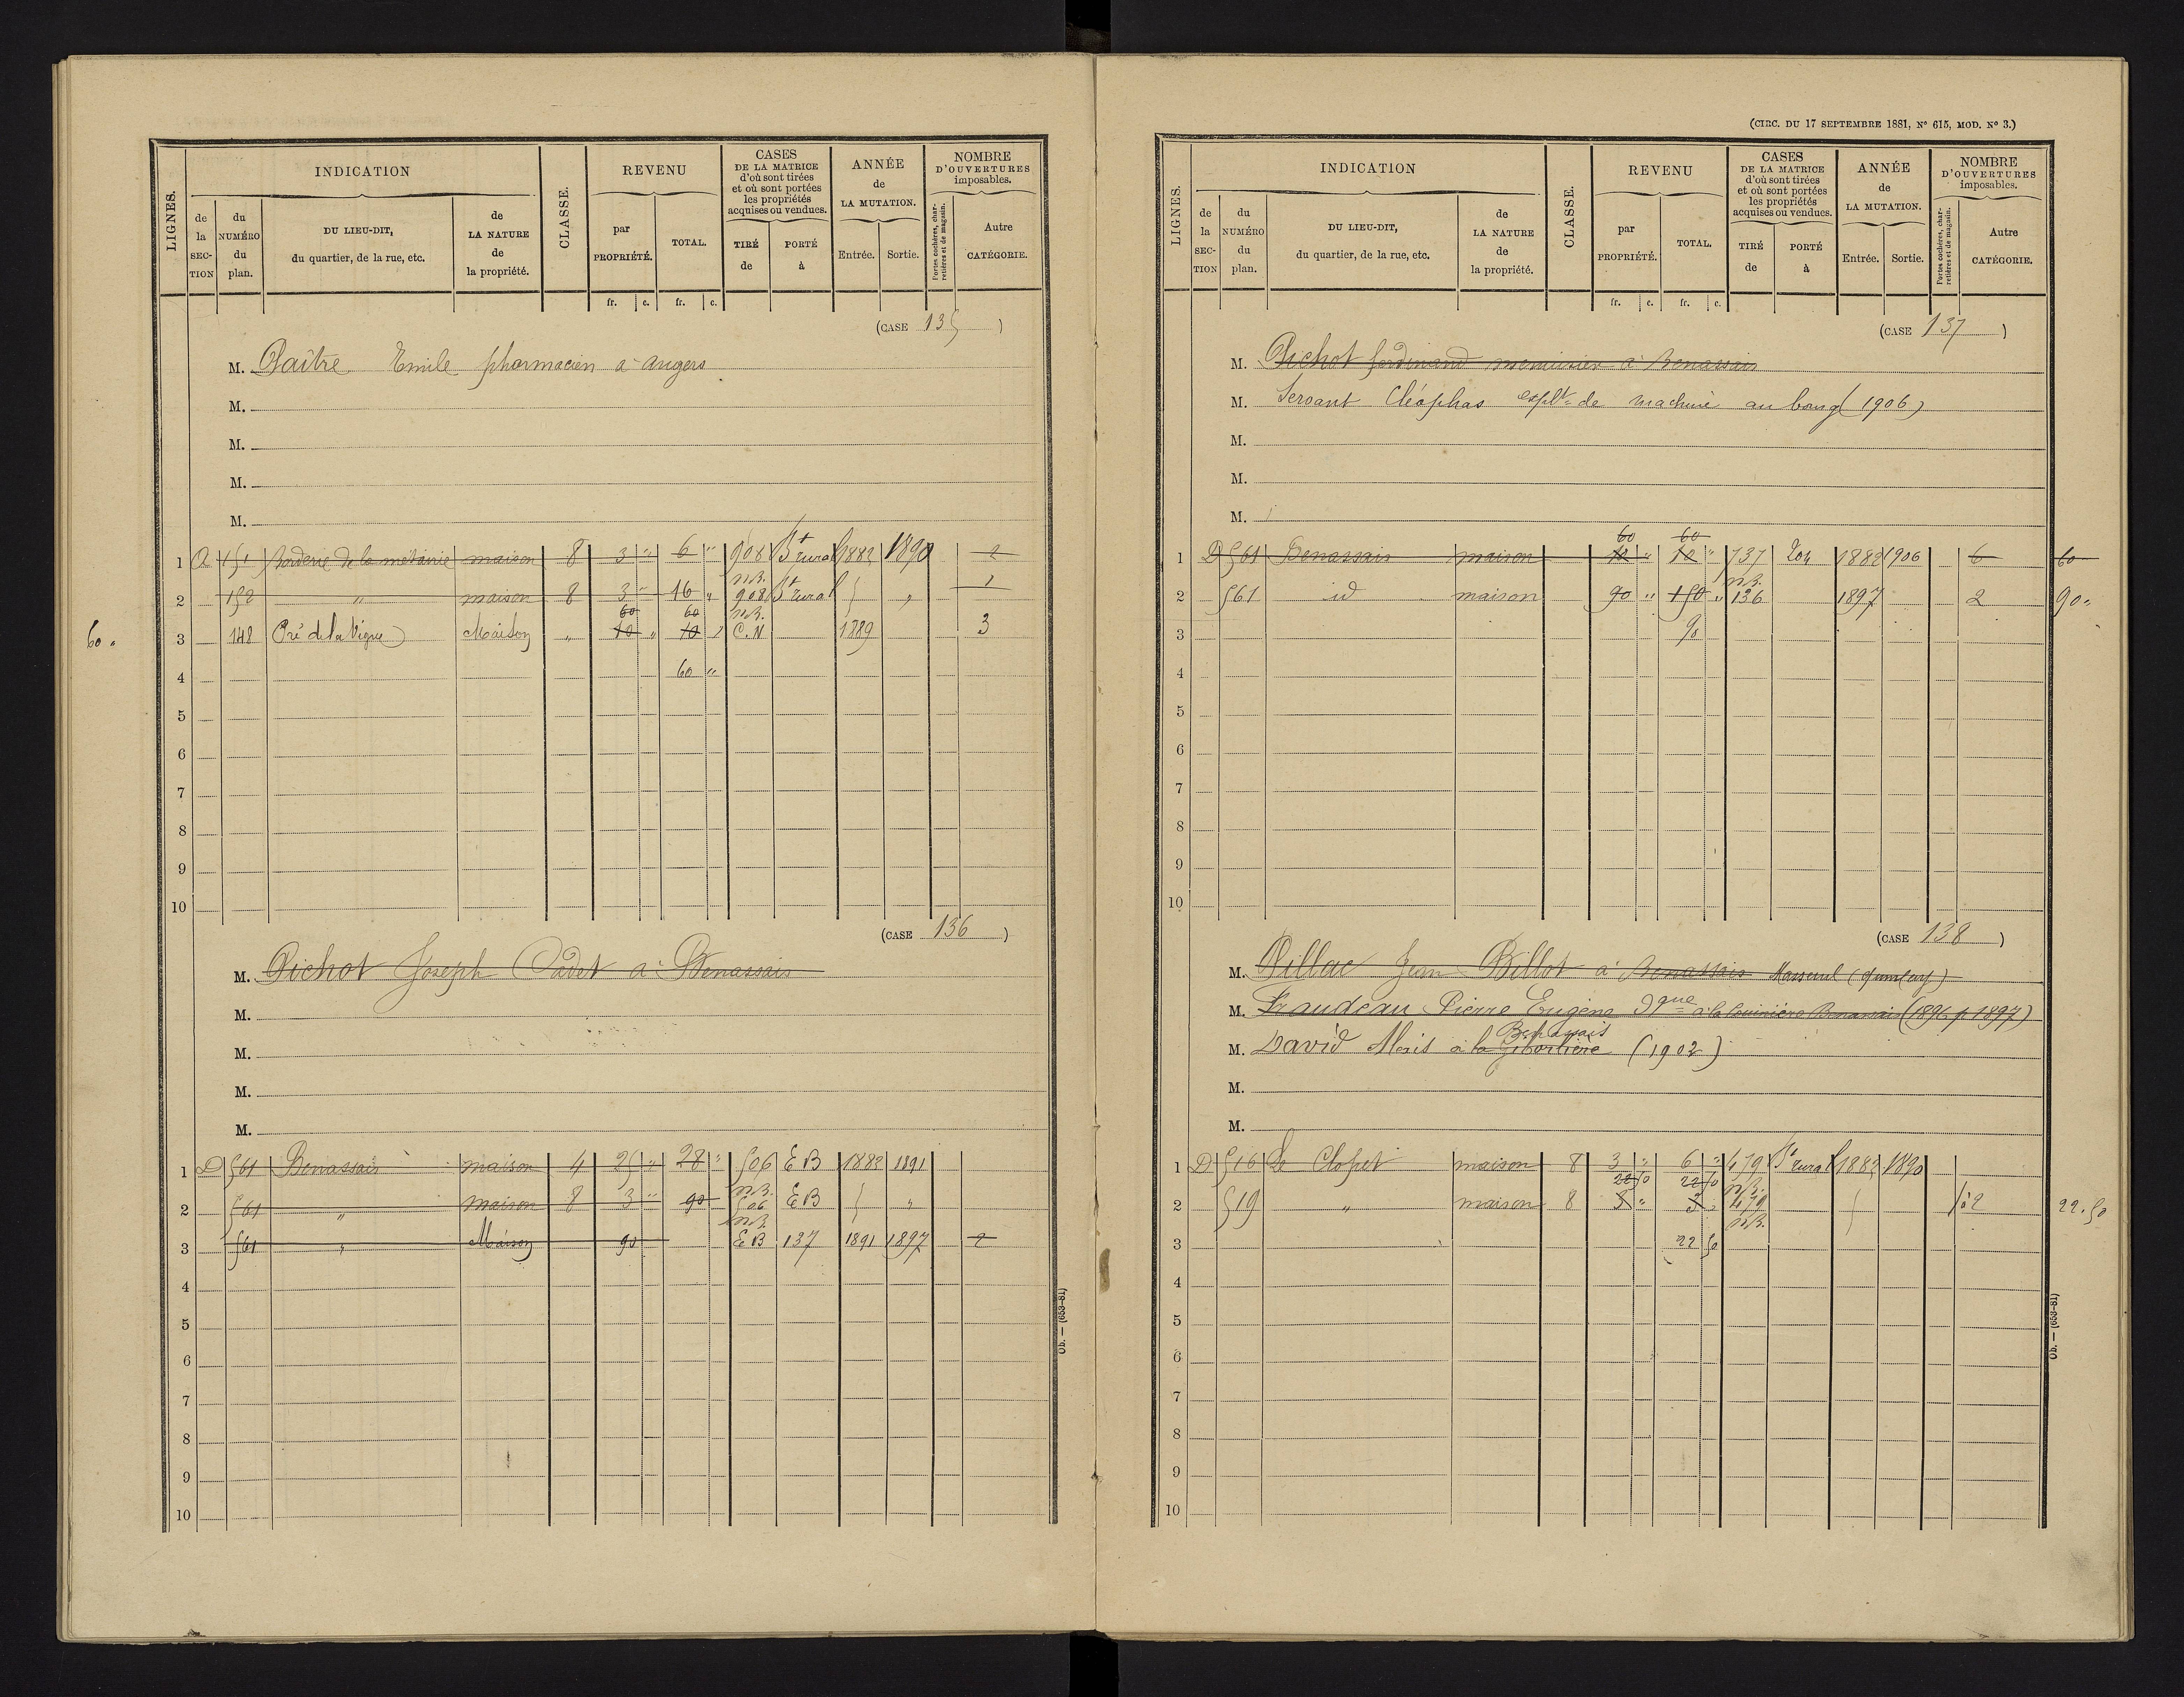 LIGNES.
INDICATION
CLASSE.
REVENU
CASES
DE LA MATRICE
d'où sont tirées
et où sont portées
les propriétés
acquises ou vendues.
ANNÉE
de
LA MUTATION.
NOMBRE
D'OUVERTURES
imposables.
de la SEC-TION
du NUMÉRO du plan.
DU LIEU-DIT,
du quartier, de la rue, etc.
de LA NATURE de la propriété.
par PROPRIÉTÉ.
TOTAL.
TIRÉ de
PORTÉ à
Entrée.
Sortie.
Portes cochères, charretières et de magasin.
Autre CATÉGORIE.
fr. c. fr. c.
(CASE 135)
M. Paître Emile pharmacien à angers
M.
M.
M.
M.
1 A 151 Borderie de la métairie maison 8 3 " 6 " 908 St rural 1882 1890 2
n.B.
2 152 " maison 8 3 " 16 " 908 St rural " 1
60 60 n.B.
60 " 3 142 Pré de la Vigne Maison " 10 " 10 " C.N 1889 3
4 60 "
5
6
7
8
9
10
(CASE 136)
M. Pichot Joseph Cadet à Benassais
M.
M.
M.
M.
1 D 561 Benassais maison 4 25 " 28 " 506 EB 1882 1891
n.B.
2 561 " maison 8 3 " 90 506 EB "
n.B.
3 561 " Maison 90 EB 137 1891 1897 2
4
5
6
7
8
9
10
Ob. — (653-81)
(CIRC. DU 17 SEPTEMBRE 1881, N° 615, MOD. N° 3.)
LIGNES.
INDICATION
CLASSE.
REVENU
CASES
DE LA MATRICE
d'où sont tirées
et où sont portées
les propriétés
acquises ou vendues.
ANNÉE
de
LA MUTATION.
NOMBRE
D'OUVERTURES
imposables.
de la SEC-TION
du NUMÉRO du plan.
DU LIEU-DIT,
du quartier, de la rue, etc.
de LA NATURE de la propriété.
par PROPRIÉTÉ.
TOTAL.
TIRÉ de
PORTÉ à
Entrée.
Sortie.
Portes cochères, charretières et de magasin.
Autre CATÉGORIE.
fr. c. fr. c.
(CASE 137)
M. Pichot ferdinand menuisier à Benassais
M. Servant Cléophas explt de machine au bourg (1906)
M.
M.
M.
60 60
1 D 561 Benassais maison 10 " 10 " 737 204 1882 1906 6 60
n.B.
2 561 id maison 90 " 150 " 136 1897 2 90 "
3 90
4
5
6
7
8
9
10
(CASE 138)
M. Pillac Jean Billot à Benassais Masseuil (Quinçay)
M. Fraudeau Pierre Eugène dque à la Benassais (1896 p 1897)
Benassais
M. David Alexis à la Giborlière (1902)
M.
M.
1 D 516 Le Clopet maison 8 3 " 6 " 479 St rural 1882 1890
22 50 22 50 n.B.
2 519 " maison 8 3 " 3 " 479 1 à 2 22.50
n.B.
3 22 50
4
5
6
7
8
9
10
Ob. — (653-81)